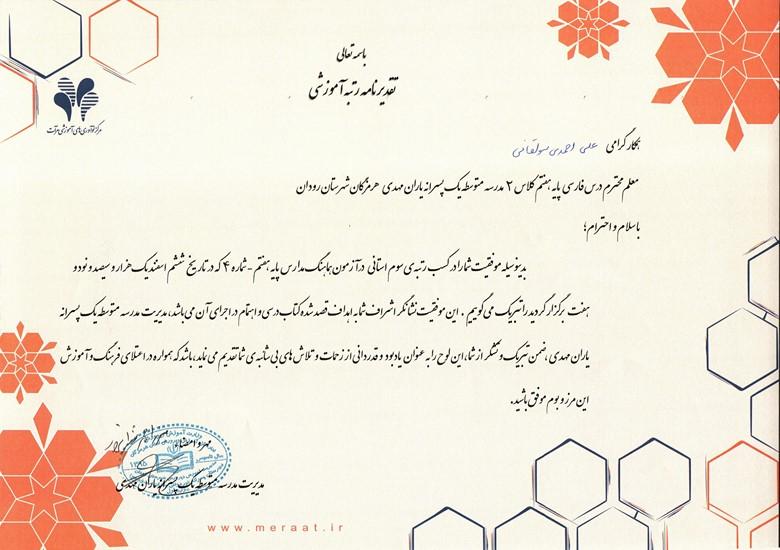 باسمه تعالی
تقدیرنامه رتبه آموزشی
مرکز نوآوری‌های آموزشی مرآت
همکار گرامی علی احمدی سولقانی
معلم محترم درس فارسی پایه هفتم کلاس ۲ مدرسه متوسطه یک پسرانه یاران مهدی هرمزگان شهرستان رودان
باسلام و احترام؛
بدینوسیله موفقیت شما را در کسب رتبه‌ی سوم استانی در آزمون هماهنگ مدارس پایه هفتم - شماره ۴ که در تاریخ ششم اسفند یک هزار و سیصد و نود و
هفت برگزار گردید را تبریک می گوییم . این موفقیت نشانگر اشراف شما به اهداف قصد شده کتاب درسی و اهتمام در اجرای آن می باشد، مدیریت مدرسه متوسطه یک پسرانه
یاران مهدی، ضمن تبریک و تشکر از شما، این لوح را به عنوان یادبود و قدردانی از زحمات و تلاش های بی شائبه‌ی شما تقدیم می نماید، باشد که همواره در اعتلای فرهنگ و آموزش
این مرز و بوم موفق باشید.
مهر و امضاء
۱۳۹۵
مدیریت مدرسه متوسطه یک پسرانه یاران مهدی
www.meraat.ir